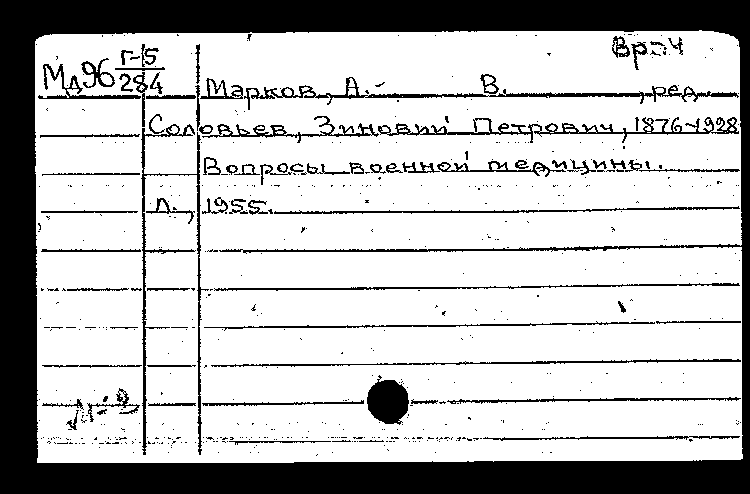 Врач
Мд96 Г-5/284
Марков, А.- В. , ред.
Соловьев, Зиновий Петрович, 1876-1928
Вопросы военной медицины.
Л., 1955.